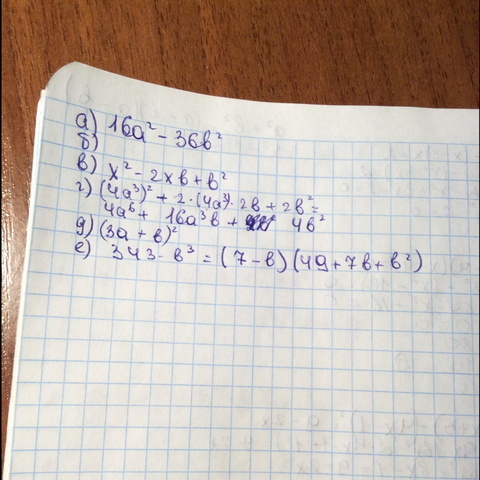 а) 16a² - 36b²
б)
в) x² - 2xb + b²
г) (4a³)² + 2·(4a³)·2b + 2b² =
4a⁶ + 16a³b + 4b²
д) (3a + b)²
е) 343 - b³ = (7 - b)(49 + 7b + b²)